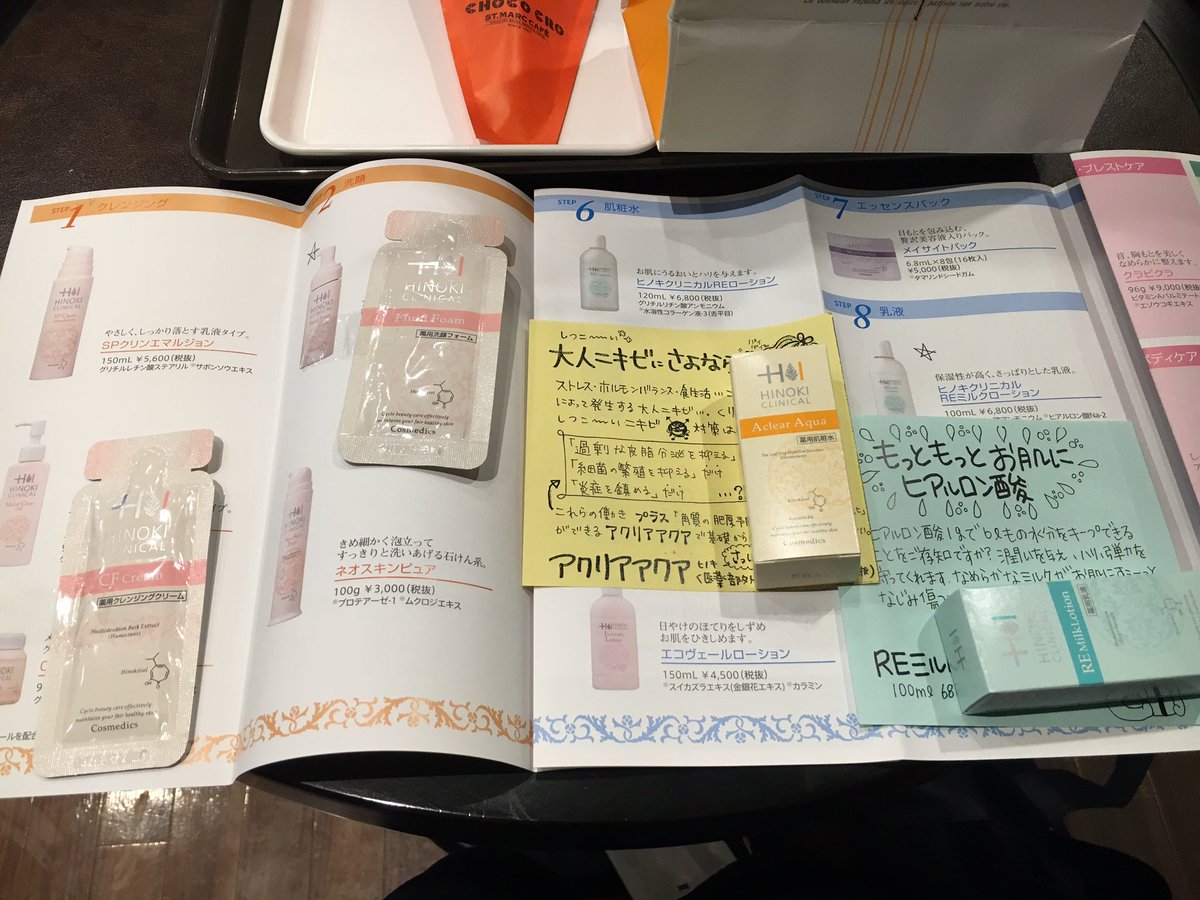 CHOCO CRO
ST. MARC CAFÉ
Le bonheur répand un suave parfum sur notre vie.
STEP 1 クレンジング
やさしく、しっかり落とす乳液タイプ。
SPクリンエマルジョン
150mL ￥5,600(税抜)
グリチルレチン酸ステアリル *サボンソウエキス
HINOKI
CLINICAL
HINOKI
CLINICAL
CF Cream
薬用クレンジングクリーム
Phellodendron Bark Extract
(Humectant)
Hinokitiol
Cycle beauty care effectively
maintains your fair healthy skin.
Cosmedics
2 洗顔
HINOKI
CLINICAL
Fluid Foam
薬用洗顔フォーム
Cycle beauty care effectively
maintains your fair healthy skin.
Cosmedics
きめ細かく泡立って
すっきりと洗いあげる石けん系。
ネオスキンピュア
100g ￥3,000(税抜)
*プロテアーゼ-1 *ムクロジエキス
STEP 6 肌粧水
お肌にうるおいとハリを与えます。
ヒノキクリニカルREローション
120mL ￥6,800(税抜)
グリチルリチン酸アンモニウム
*水溶性コラーゲン液-3(舌平目)
しつこーい
大人ニキビにさよなら
ストレス・ホルモンバランス・食生活…
によって発生する大人ニキビ…
しつこいニキビ 対策は
「過剰な皮脂分泌を抑える」
「細菌の繁殖を抑える」だけ
「炎症を鎮める」だけ …?
これらの働き プラス「角質の肥厚
ができる アクリアアクア で基礎から
アクリアアクア
HINOKI
CLINICAL
Aclear Aqua
薬用肌粧水
Hinokitiol
Cycle beauty care effectively
maintains your fair healthy skin.
Cosmedics
日やけのほてりをしずめ
お肌をひきしめます。
エコヴェールローション
150mL ￥4,500(税抜)
*スイカズラエキス(金銀花エキス) *カラミン
STEP 7 エッセンスパック
目もとを包み込む、
贅沢美容液入りパック。
メイサイトパック
6.8mL×8包(16枚入)
￥5,000(税抜)
*タマリンドシードガム
STEP 8 乳液
保湿性が高く、さっぱりとした乳液。
ヒノキクリニカル
REミルクローション
100mL ￥6,800(税抜)
*ヒアルロン酸Na-2
もっともっとお肌に
ヒアルロン酸
ヒアルロン酸1gで6Lもの水分をキープできる
ことをご存知ですか?潤いを与え、ハリ、弾力を
守ってくれます。なめらかなミルクがお肌にすーっと
なじみ
REミル
100ml
RE MilkLotion
ブレストケア
首、胸もとを美しく
なめらかに整えます。
クラビクラ
96g ￥9,000(税抜)
ビタミンAパルミテート
*エゾウコギエキス
ボディケア